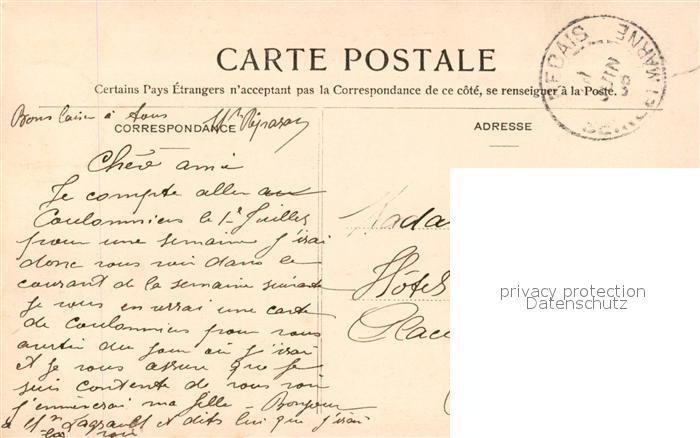 CARTE POSTALE
Certains Pays Étrangers n'acceptent pas la Correspondance de ce côté, se renseigner à la Poste.
REBAIS
MARNE
JUIN
SEINE ET
Bons baisers à tous
CORRESPONDANCE
ADRESSE
Chère amie
Je compte aller au
Coulommiers le 1er Juillet
pour une semaine j'irai
donc vous voir dans le
courant de la semaine suivante
Je vous enverrai une carte
de Coulommiers pour vous
avertir du jour où j'irai
et je vous assure que je
suis contente de vous voir
j'emmènerai ma fille - Bonjour
à Mme et dites lui que j'irai
la voir
Mada
Hôtel
Place
privacy protection
Datenschutz